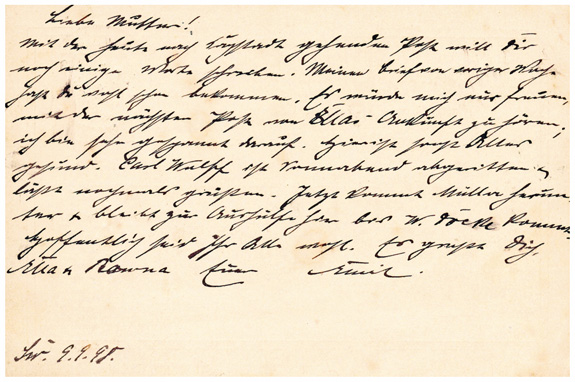 Liebe Mutter!
Mit der heute nach Capstadt gehenden Post will Dir
noch einige Worte schreiben. Meinen Brief von voriger Woche
hast Du wohl schon bekommen. Es würde mich nur freuen,
mit der nächsten Post von Ellas Ankunft zu hören;
ich bin sehr gespannt darauf. Hier ist sonst Alles
gesund. Carl Wulff ist Sonnabend abgeritten &
läßt nochmals grüßen. Jetzt kommt Müller herun-
ter & bleibt zur Aushülfe hier bis W. kommt.
Hoffentlich seid Ihr Alle wohl. Es grüßt Dich,
Ella & Euer Emil.
9.9.98.